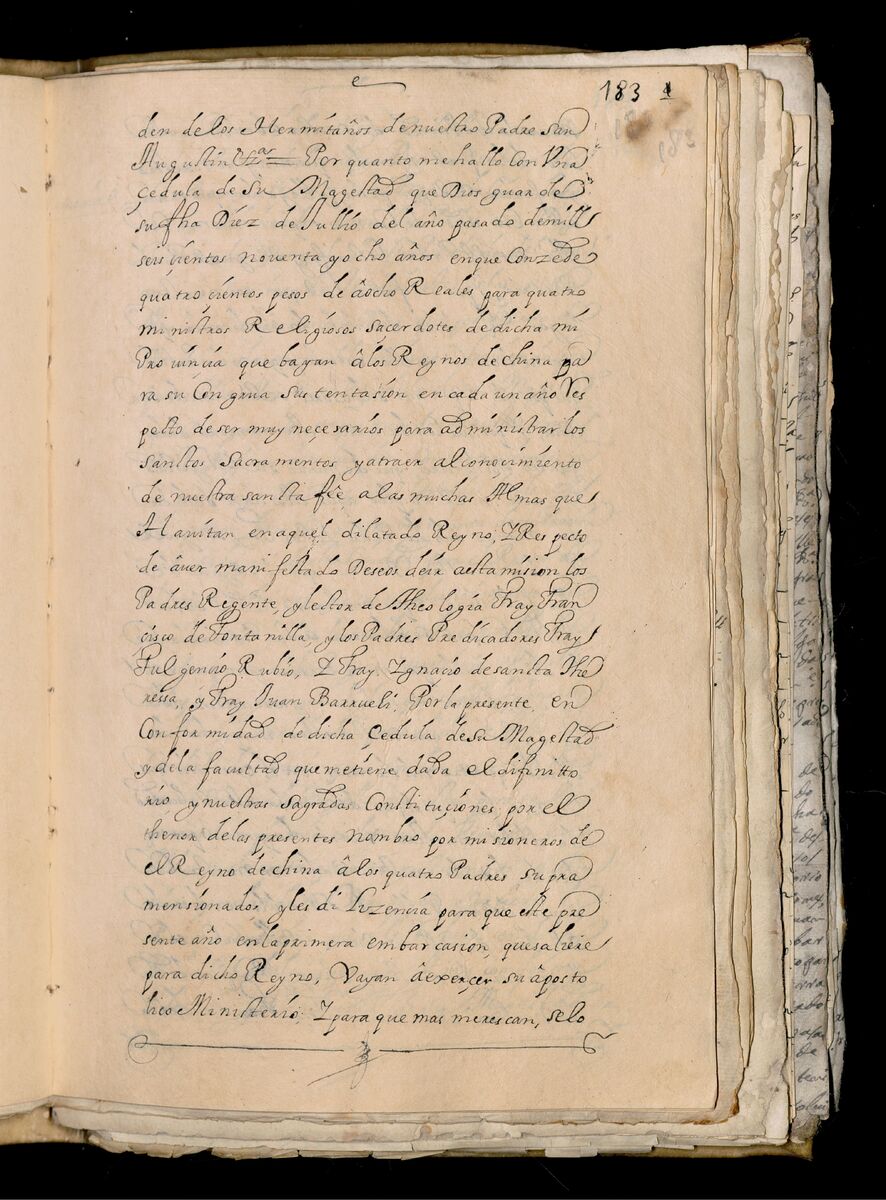 183
den delos Hermitaños denuestro Padre San
Augustin &ar = Por quanto mehallo Con Vna
çedula de Su Magestad que Dios guarde
sufha Diez de Jullio del año pasado demill
seisçientos noventa yocho años enque Conzede
quatroçientos pesos de âocho Reales para quatro
ministros Religiosos saçerdotes dedicha mi
Prouinçia que bayan âlos Reynos dechina pa
ra su Congrua sustentasion encada unaño Res
pecto deser muy neçesarios para administrar los
sanctos sacramentos yatraer alconoçimiento
de nuestra sancta fêe alas muchas Almas que
Havitan enaquel dilatado Reyno, Y Respecto
de âuer manifestado Deseos deir aesta mision los
Padres Regente, ylector de theologia Fray Fran
çisco de Fontanilla, y los Padres Predicadores Fray
Fulgencio Rubio, Y Fray Ygnacio desancta the
ressa, y Fray Juan Barrueli, Porla presente, en
Conformidad dedicha Çedula desu Magestad
ydela facultad quemetiene dada el difinitto
rio ynuestras sagradas Constituçiones, por el
thenor delas presentes nombro por misioneros de
el Reyno dechina âlos quatro Padres supra
mensionados yles di Lizencia para que este pre
sente año enlaprimera embarcasion, quesaliere
para dicho Reyno, Vayan âexerçer su âposto
lico Ministerio; Y para que mas merescan, selo